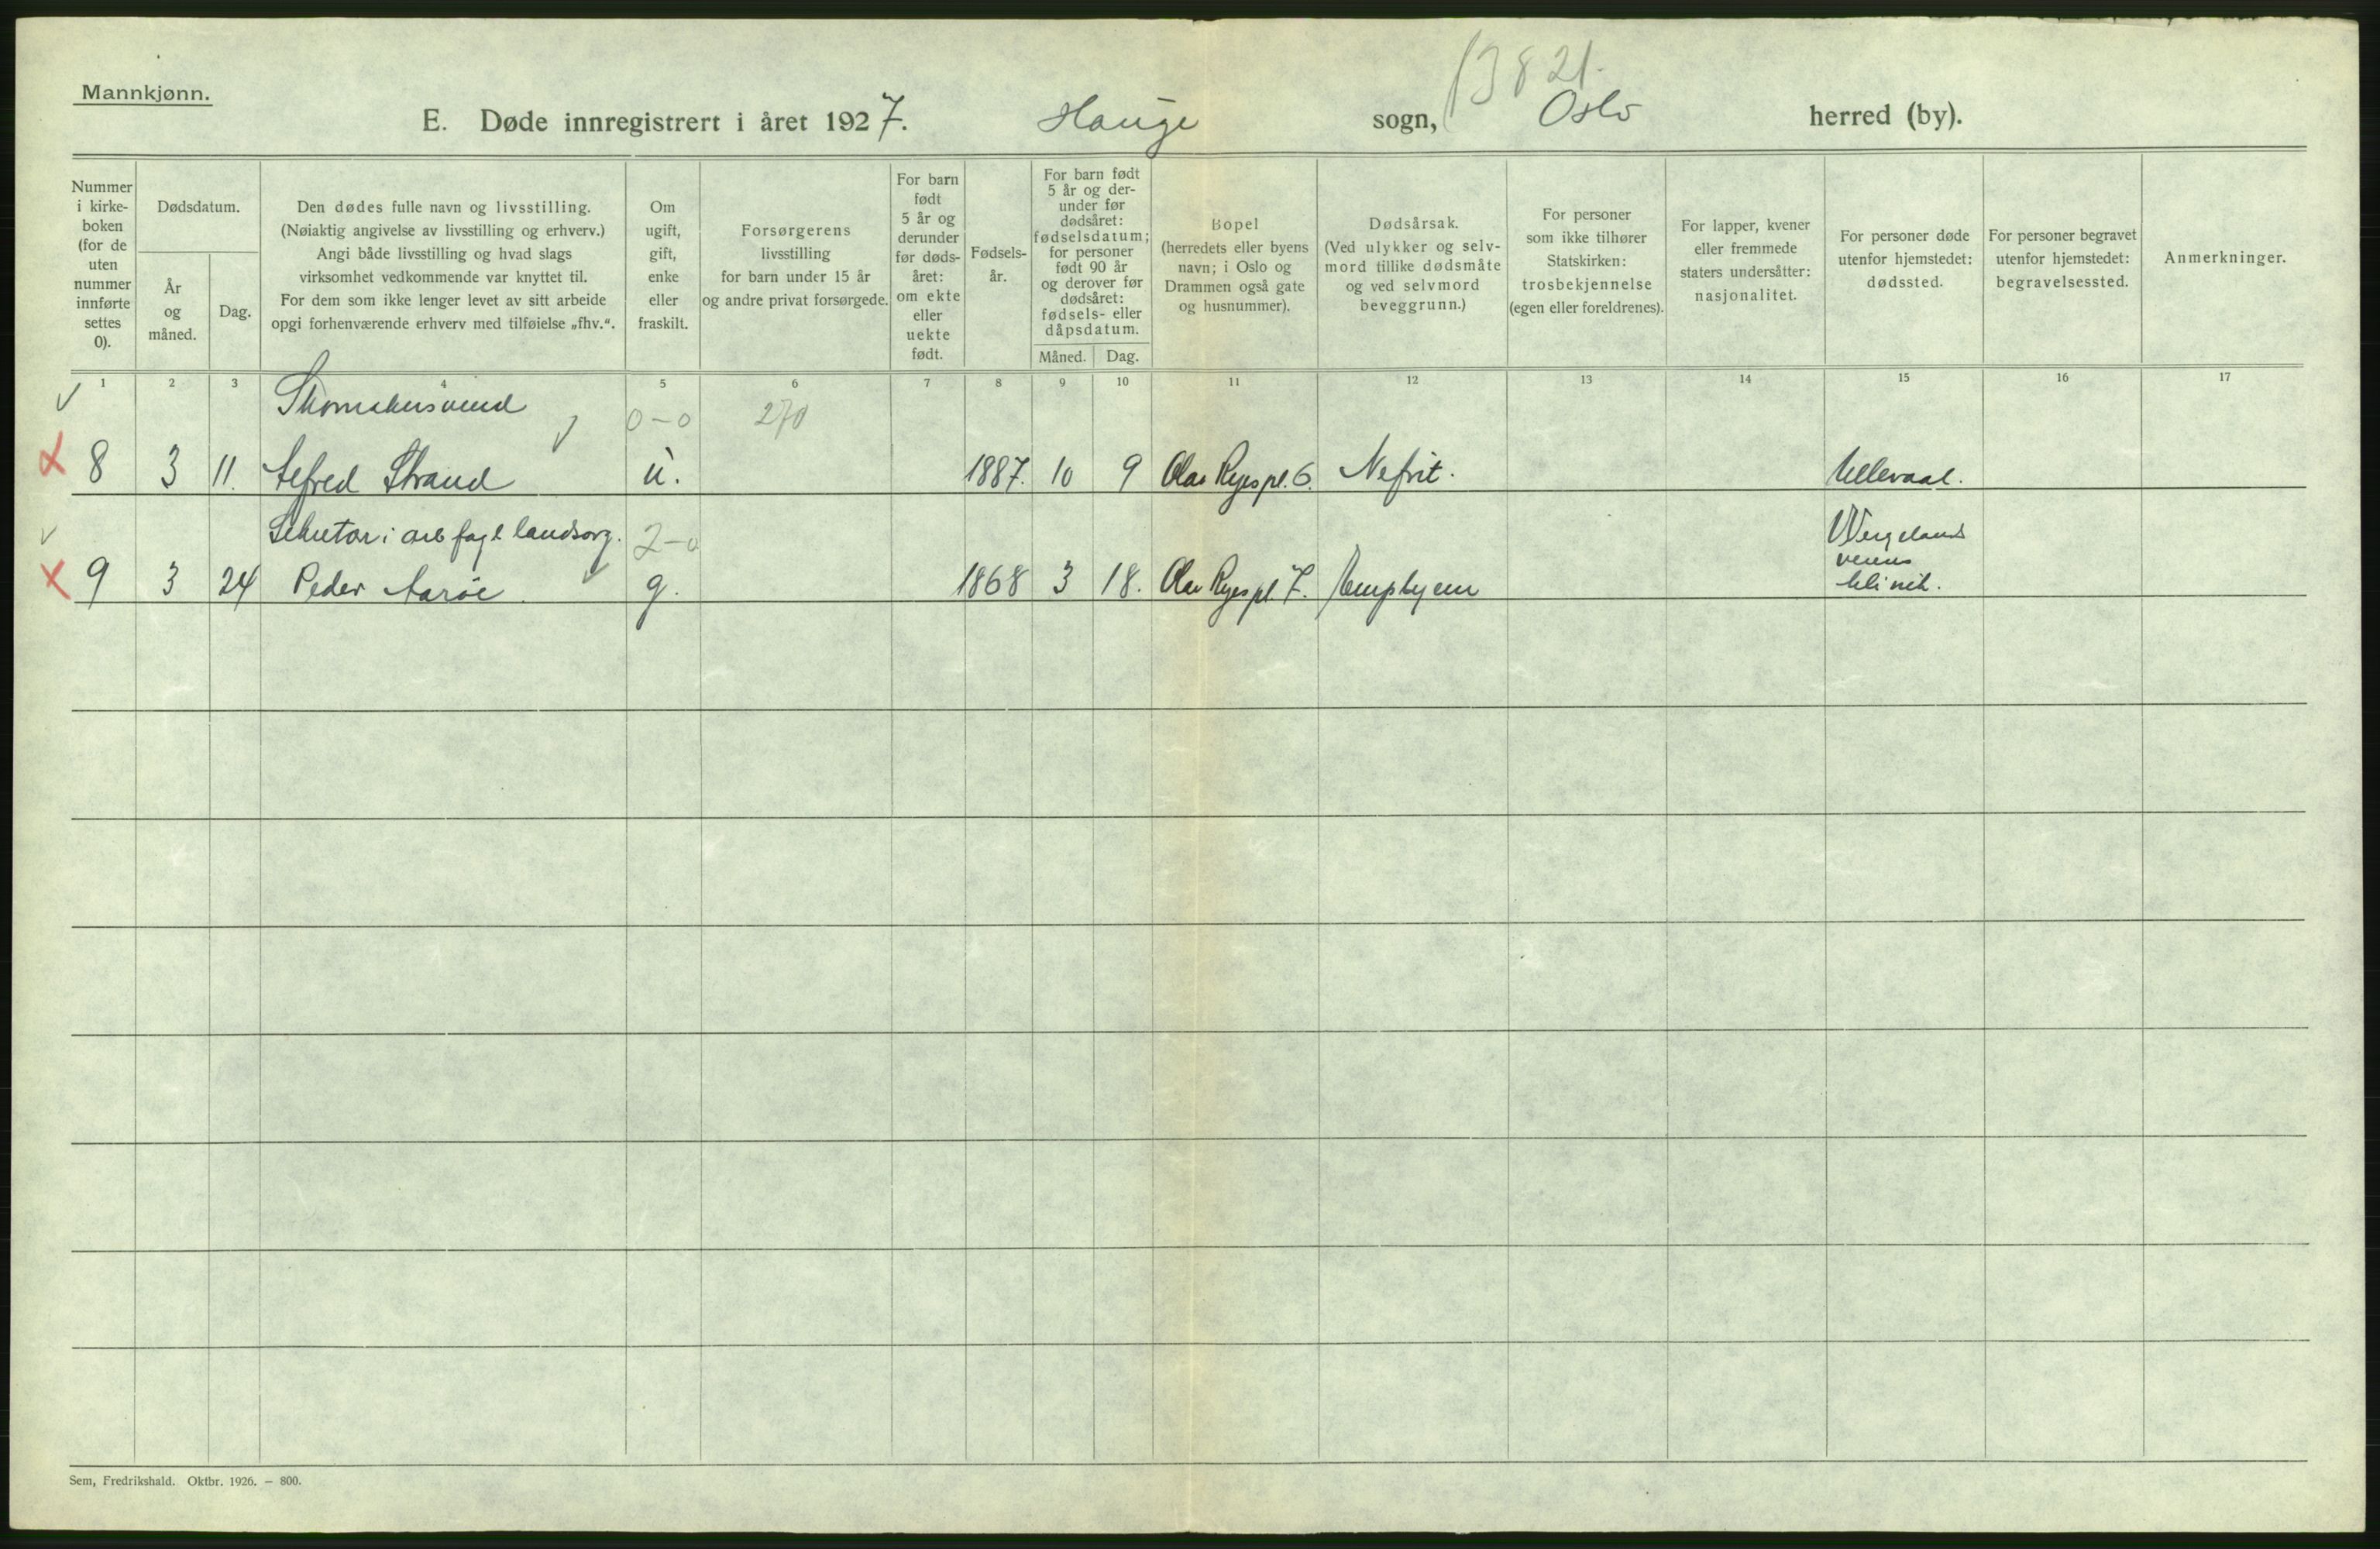 Mannkjønn.
13821.
E. Døde innregistrert i året 1927. Hauge sogn, Oslo herred (by).
Nummer i kirke- boken (for de uten nummer innførte settes 0).
Dødsdatum.
År og måned.
Dag.
Den dødes fulle navn og livsstilling.
(Nøiaktig angivelse av livsstilling og erhverv.)
Angi både livsstilling og hvad slags
virksomhet vedkommende var knyttet til.
For dem som ikke lenger levet av sitt arbeide
opgi forhenværende erhverv med tilføielse „fhv.“.
Om ugift, gift, enke eller fraskilt.
Forsørgerens
livsstilling
for barn under 15 år
og andre privat forsørgede.
For barn født 5 år og derunder før døds- året: om ekte eller uekte født.
Fødsels- år.
For barn født 5 år og der- under før dødsåret: fødselsdatum; for personer født 90 år og derover før dødsåret: fødsels- eller dåpsdatum.
Måned. Dag.
Bopel
(herredets eller byens
navn; i Oslo og
Drammen også gate
og husnummer).
Dødsårsak.
(Ved ulykker og selv-
mord tillike dødsmåte
og ved selvmord
beveggrunn.)
For personer
som ikke tilhører
Statskirken:
trosbekjennelse
(egen eller foreldrenes).
For lapper, kvener
eller fremmede
staters undersåtter:
nasjonalitet.
For personer døde
utenfor hjemstedet:
dødssted.
For personer begravet
utenfor hjemstedet:
begravelsessted.
Anmerkninger.
1 2 3 4 5 6 7 8 9 10 11 12 13 14 15 16 17
Skomakersvend 0-0 270
8 3 11. Alfred Strand u. 1887. 10 9 Olav Ryes pl. 6. Nefrit. Ullevaal.
Sekretær i arb fagl landsorg. 2-0
9 3 24 Peder Aarøe g. 1868 3 18. Olav Ryes pl. 7. Empyem
Wergelands
veiens
klinik.
Sem, Fredrikshald. Oktbr. 1926. — 800.